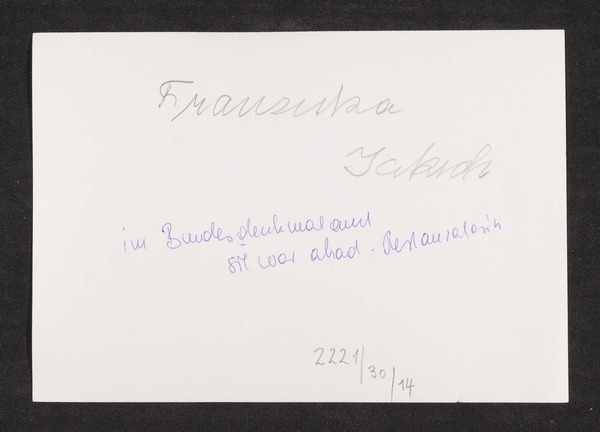 Franziska
im Bundesdenkmalamt
sie war akad. Restauratorin
2221/30/14